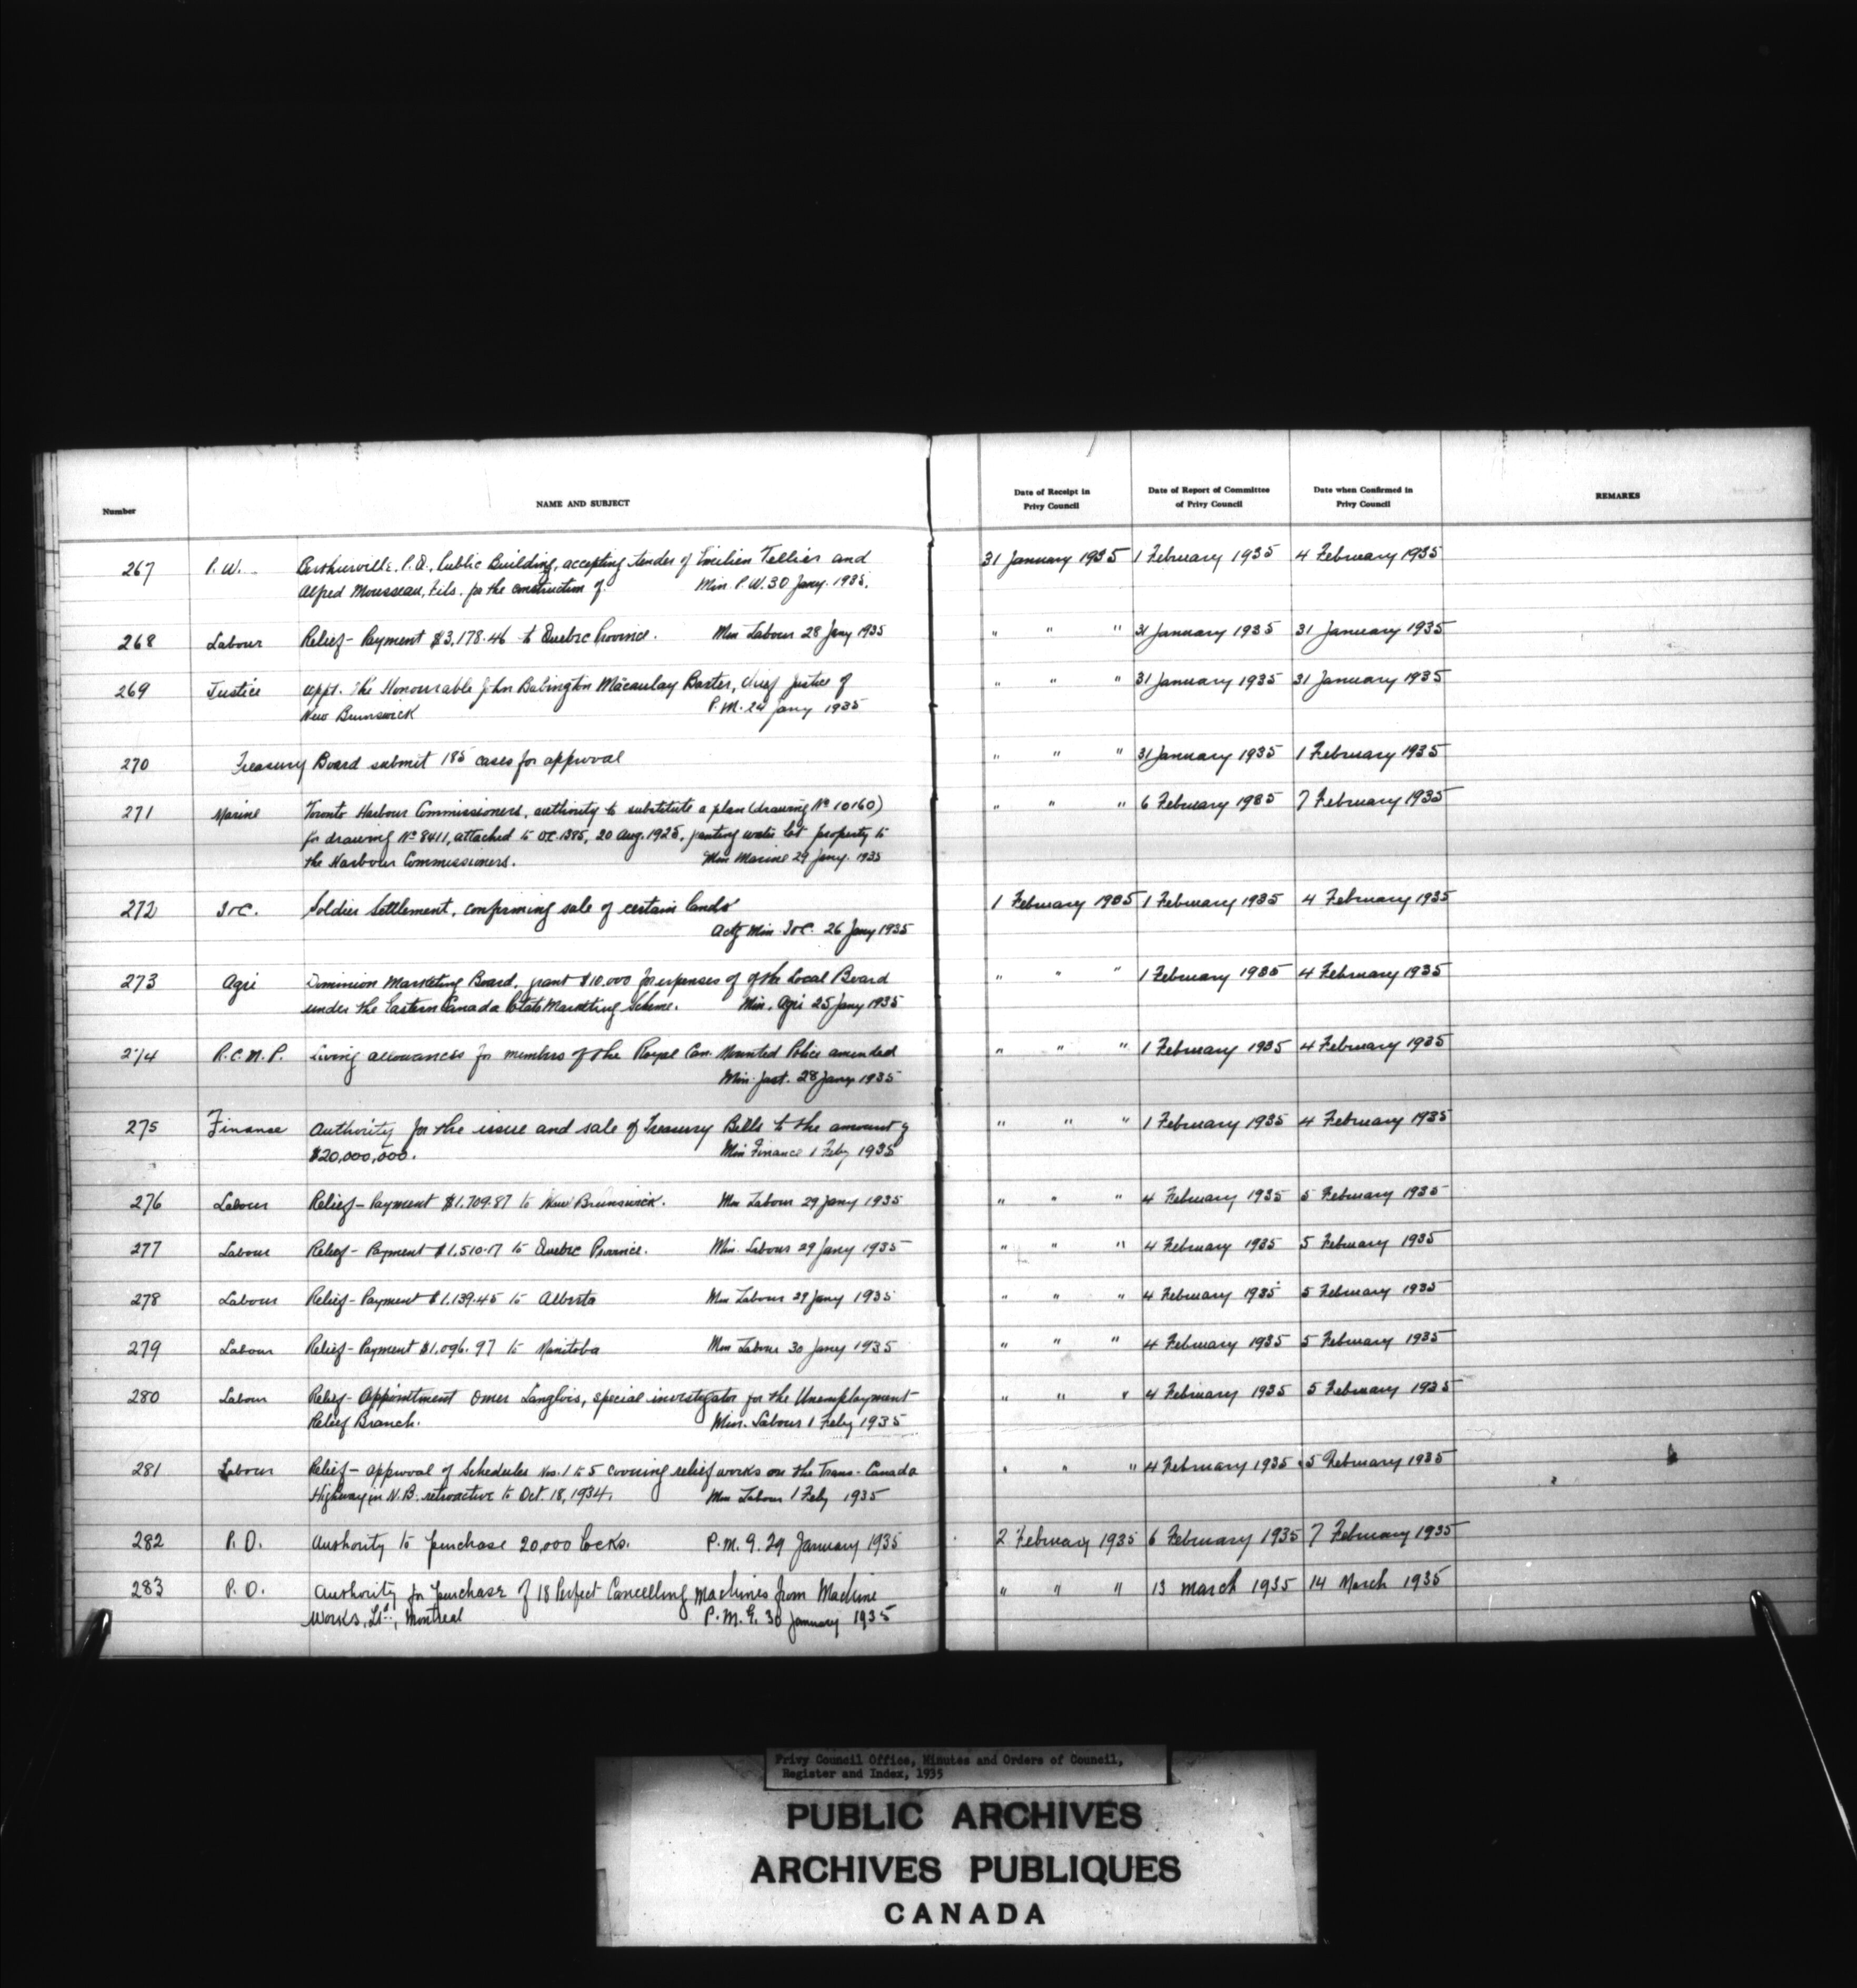 Number NAME AND SUBJECT Date of Receipt in Privy Council Date of Report of Committee of Privy Council Date when Confirmed in Privy Council REMARKS
267 P.W. Berthierville, P.Q., Public Building, accepting tender of Emilien Tellier and 31 January 1935 1 February 1935 4 February 1935
Alfred Mousseau, fils. for the construction of. Min. P.W. 30 Jany. 1935.
268 Labour Relief - Payment $3,178.46 to Quebec Province. Min Labour 28 Jany 1935 " " " 31 January 1935 31 January 1935
269 Justice Appt. The Honourable John Babington Macaulay Baxter, Chief Justice of " " " 31 January 1935 31 January 1935
New Brunswick P.M. 24 Jany 1935
270 Treasury Board submit 185 cases for approval " " " 31 January 1935 1 February 1935
271 Marine Toronto Harbour Commissioners, authority to substitute a plan (drawing No 10160) " " " 6 February 1935 7 February 1935
for drawing No 8411, attached to OC 1385, 20 Aug. 1925, granting water lot property to
the Harbour Commissioners. Min Marine 29 Jany. 1935
272 I&C. Soldier Settlement, confirming sale of certain lands 1 February 1935 1 February 1935 4 February 1935
Actg Min I&C. 26 Jany 1935
273 Agri Dominion Marketing Board, grant $10,000 for expenses of of the Local Board " " " 1 February 1935 4 February 1935
under the Eastern Canada Potato Marketing Scheme. Min. Agri 25 Jany 1935
274 R.C.M.P. Living allowances for members of the Royal Can. Mounted Police amended " " " 1 February 1935 4 February 1935
Min. Just. 28 Jany 1935
275 Finance Authority for the issue and sale of Treasury Bills to the amount of " " " 1 February 1935 4 February 1935
$20,000,000. Min Finance 1 Feby 1935
276 Labour Relief - Payment $1,709.87 to New Brunswick. Min Labour 29 Jany 1935 " " " 4 February 1935 5 February 1935
277 Labour Relief - Payment $1,510.17 to Quebec Province. Min. Labour 29 Jany 1935 " " " 4 February 1935 5 February 1935
278 Labour Relief - Payment $1,139.45 to Alberta Min Labour 29 Jany 1935 " " " 4 February 1935 5 February 1935
279 Labour Relief - Payment $1,096.97 to Manitoba Min Labour 30 Jany 1935 " " " 4 February 1935 5 February 1935
280 Labour Relief - Appointment Omer Langlois, special investigator for the Unemployment " " " 4 February 1935 5 February 1935
Relief Branch. Min. Labour 1 Feby 1935
281 Labour Relief - approval of Schedules Nos. 1 to 5 covering relief works on the Trans-Canada " " " 4 February 1935 5 February 1935
Highway in N.B. retroactive to Oct. 18, 1934. Min Labour 1 Feby 1935
282 P.O. Authority to purchase 20,000 locks. P.M.G. 29 January 1935 2 February 1935 6 February 1935 7 February 1935
283 P.O. Authority for purchase of 18 Perfect Cancelling Machines from Machine " " " 13 March 1935 14 March 1935
Works, Ltd., Montreal P.M.G. 30 January 1935
Privy Council Office, Minutes and Orders of Council,
Register and Index, 1935
PUBLIC ARCHIVES
ARCHIVES PUBLIQUES
CANADA